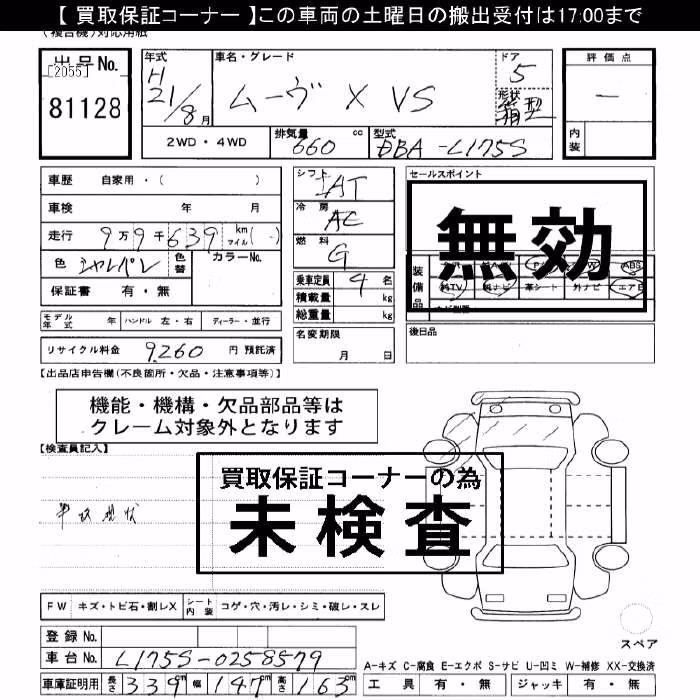 【 買取保証コーナー 】この車両の土曜日の搬出受付は17:00まで
(複合機)対応用紙
出品No. [2055] 81128
年式 H21/8月
車名・グレード ムーヴ X VS
ドア 5
形状 箱型
評価点 —
内装
2WD・4WD
排気量 660 cc
型式 DBA-L175S
車歴 自家用・( )
車検 年 月
走行 9万9千639 km マイル( )
色 シャンパン 色替 カラーNo.
保証書 有・無
シフト IAT
冷房 AC
燃料 G
乗車定員 4名
積載量 kg
総重量 kg
セールスポイント
無効
装備品 ABS
純TV 純ナビ 革シート 外ナビ エアB
モデル年式 年 ハンドル 左・右 ディーラー・並行
リサイクル料金 9,260 円 預託済
名変期限 月 日
後日品
【出品店申告欄(不良箇所・欠品・注意事項等)】
機能・機構・欠品部品等は
クレーム対象外となります
【検査員記入】
買取保証コーナーの為
未検査
現状
FW キズ・トビ石・割レX シート内装 コゲ・穴・汚レ・シミ・破レ・スレ
スペア
登録No.
車台No. L175S-0258579
A-キズ C-腐食 E-エクボ S-サビ U-凹ミ W-補修 XX-交換済
車庫証明用 長さ 339cm 幅 147cm 高さ 163cm
工具 有・無 ジャッキ 有・無